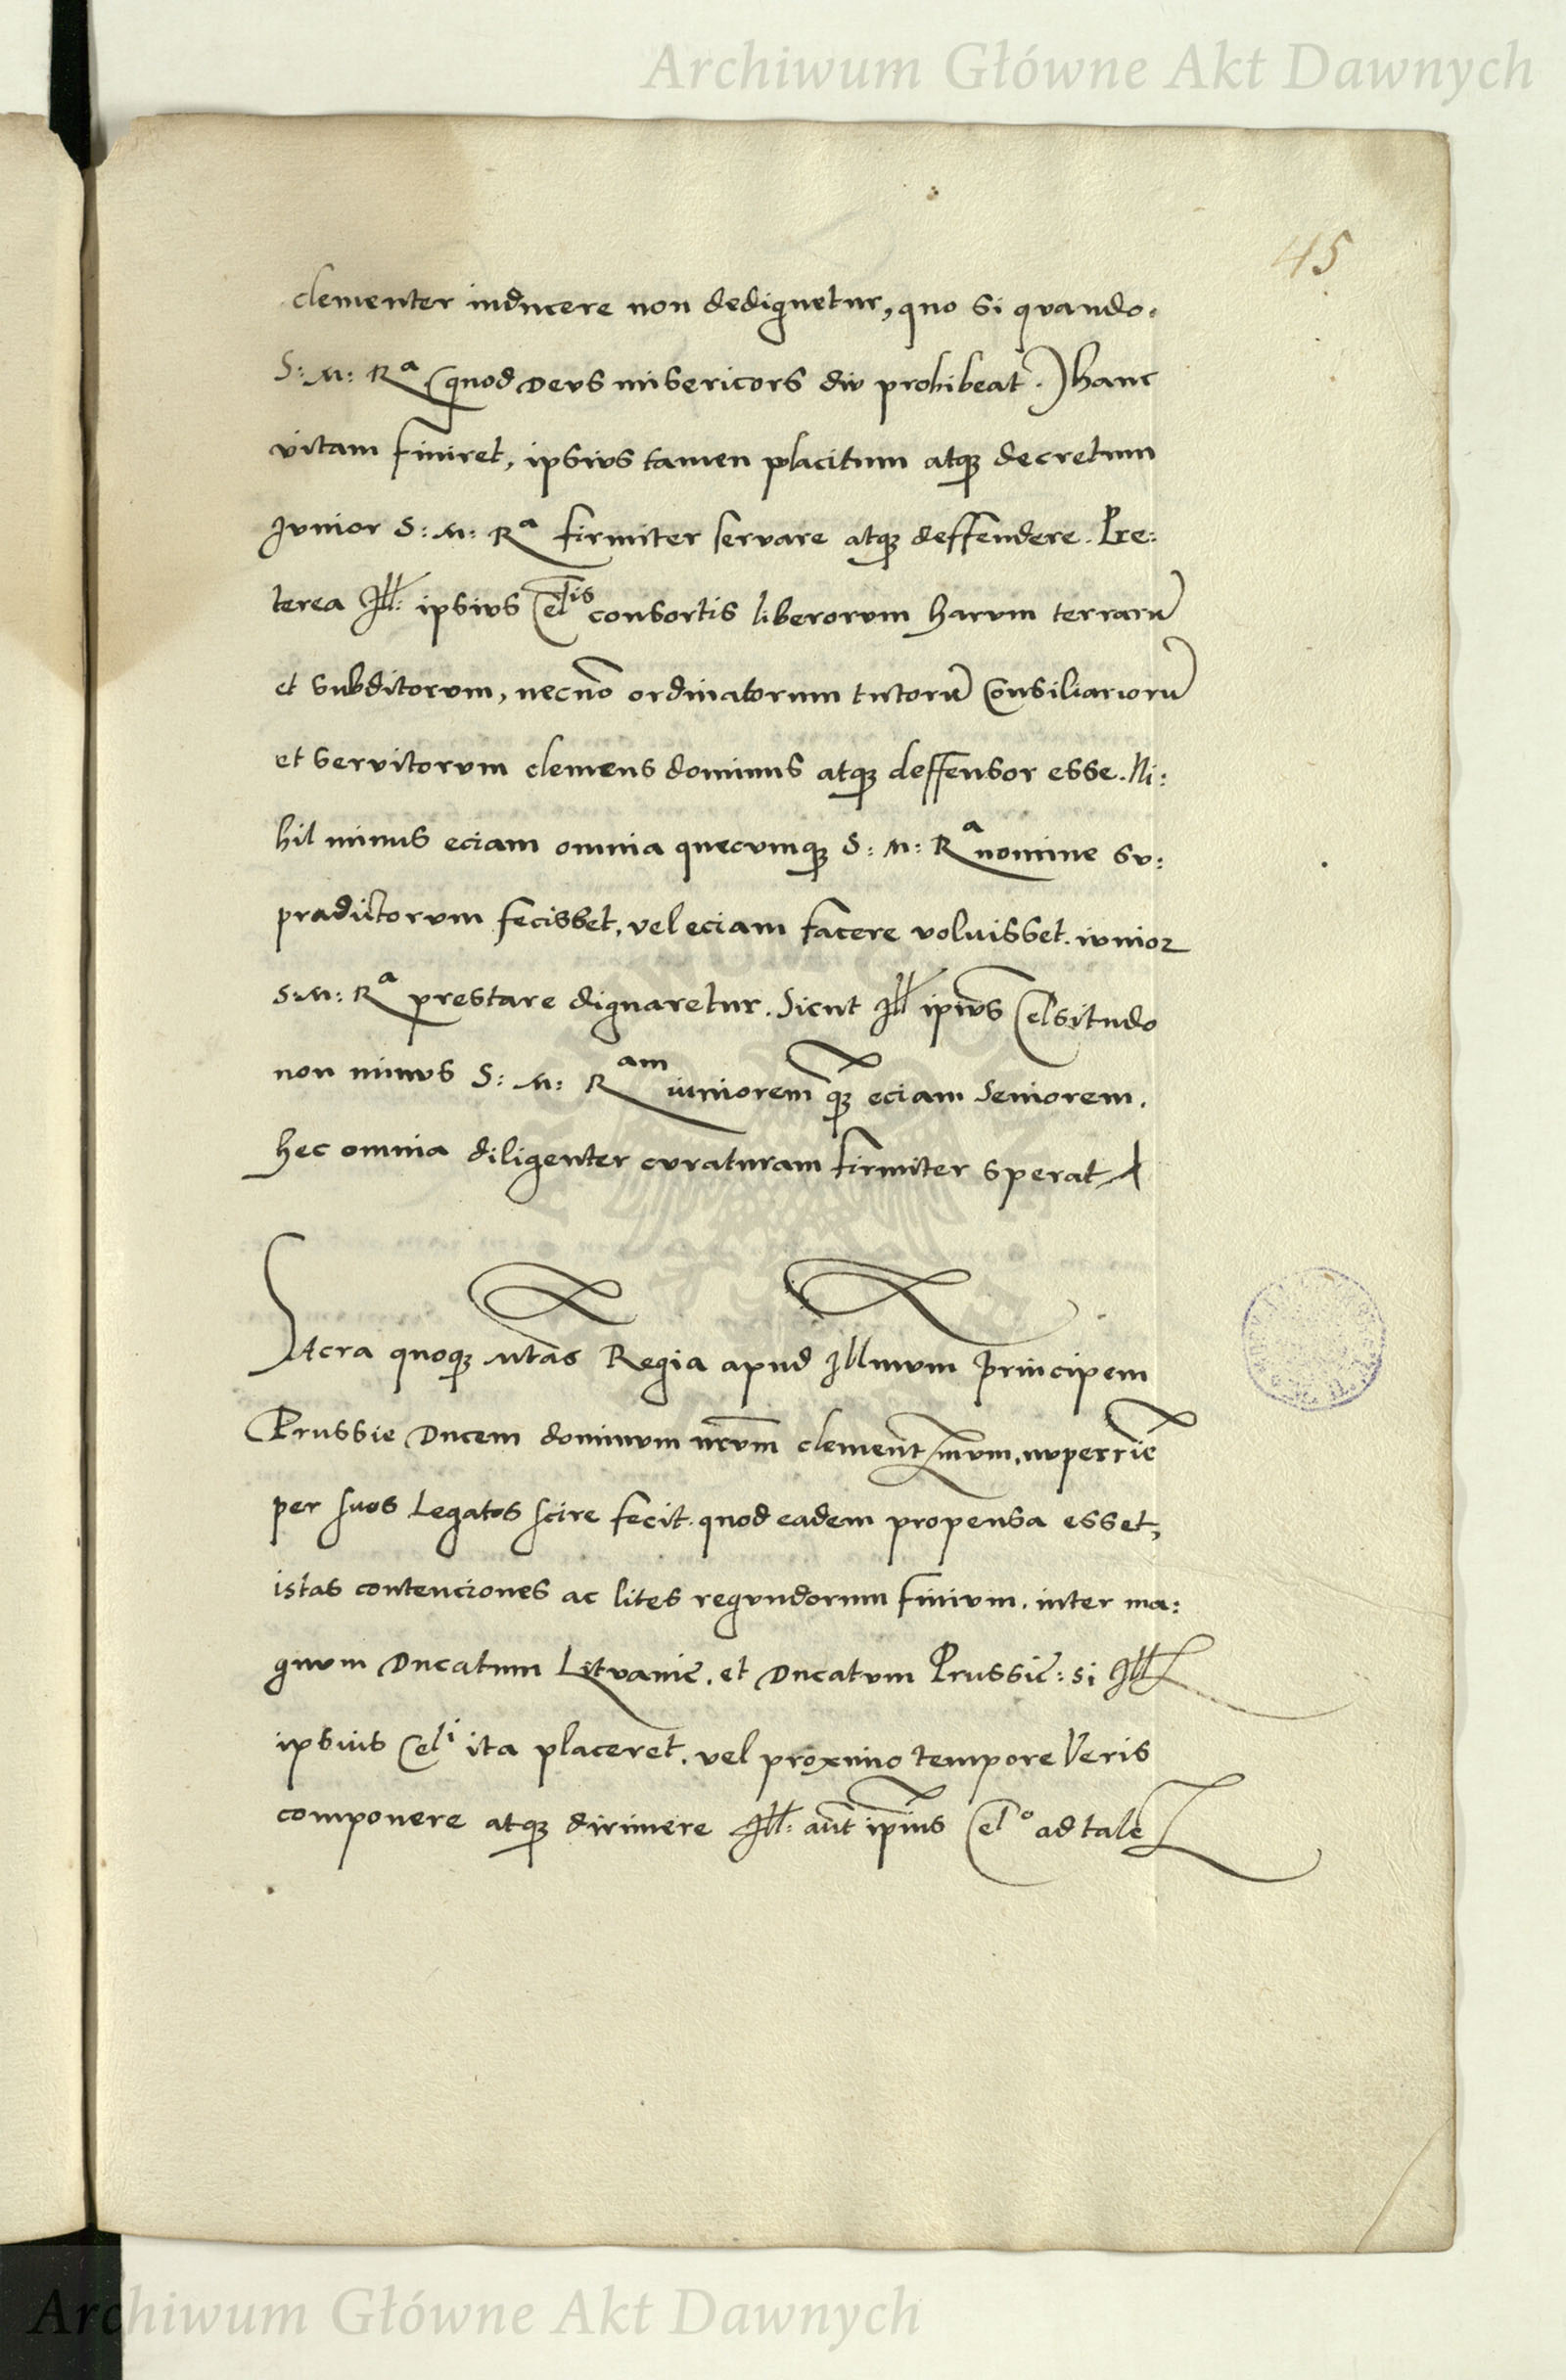 Archiwum Główne Akt Dawnych
45
clementer inducere non dedignetur, quo si quando.
S: M: Rᵃ (quod Deus misericors diu prohibeat.) hanc
vitam finiret, ipsius tamen placitum atqꝫ decretum
Junior S: M: Rᵃ firmiter servare atqꝫ deffendere. Pre:
terea Ill: ipsius Celᵗⁱˢ consortis liberorum harum terrarū
et subditorum, necnō ordinatorum tutorū Consiliariorū
et servitorum clemens dominus atqꝫ deffensor esse. Ni:
hil minus eciam omnia quecumqꝫ S: M: Rᵃ nomine su:
pradictorum fecisset, vel eciam facere voluisset. iunior
S: M: Rᵃ prestare dignaretur. Sicut Ill ip̄ius Celsitudo
non minus S: M: Rᵃᵐ iuniorem qꝫ eciam Seniorem.
hec omnia diligenter curaturam firmiter sperat
Sacra quoqꝫ Mtas Regia apud Illmum Principem
Prussie Ducem dominum nr̄um clementmum, nuperrīe
per suos Legatos scire fecit. quod eadem propensa esset,
istas contenciones ac lites regundorum finium. inter ma:
gnum Ducatum Lituanię. et Ducatum Prussię: si Ill
ipsius Celⁱ ita placeret. vel proximo tempore Veris
componere atqꝫ dirimere Ill: aūt ip̄ius Celᵒ ad tale
Archiwum Główne Akt Dawnych